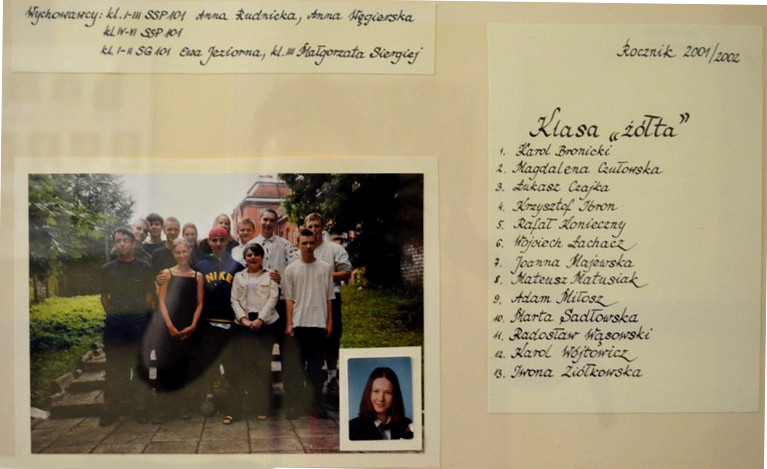 Wychowawcy: kl. I-III SSP 101 Anna Rudnicka, Anna Węgierska
kl. IV-VI SSP 101
kl. I-II SG 101 Ewa Jeziorna, kl. III Małgorzata Siergiej
Rocznik 2001/2002
Klasa „żółta”
1. Karol Bronicki
2. Magdalena Czułowska
3. Łukasz Czajka
4. Krzysztof Ibron
5. Rafał Konieczny
6. Wojciech Łachacz
7. Joanna Majewska
8. Mateusz Matusiak
9. Adam Miłosz
10. Marta Sadłowska
11. Radosław Wąsowski
12. Karol Wójtowicz
13. Iwona Ziółkowska
NIKE